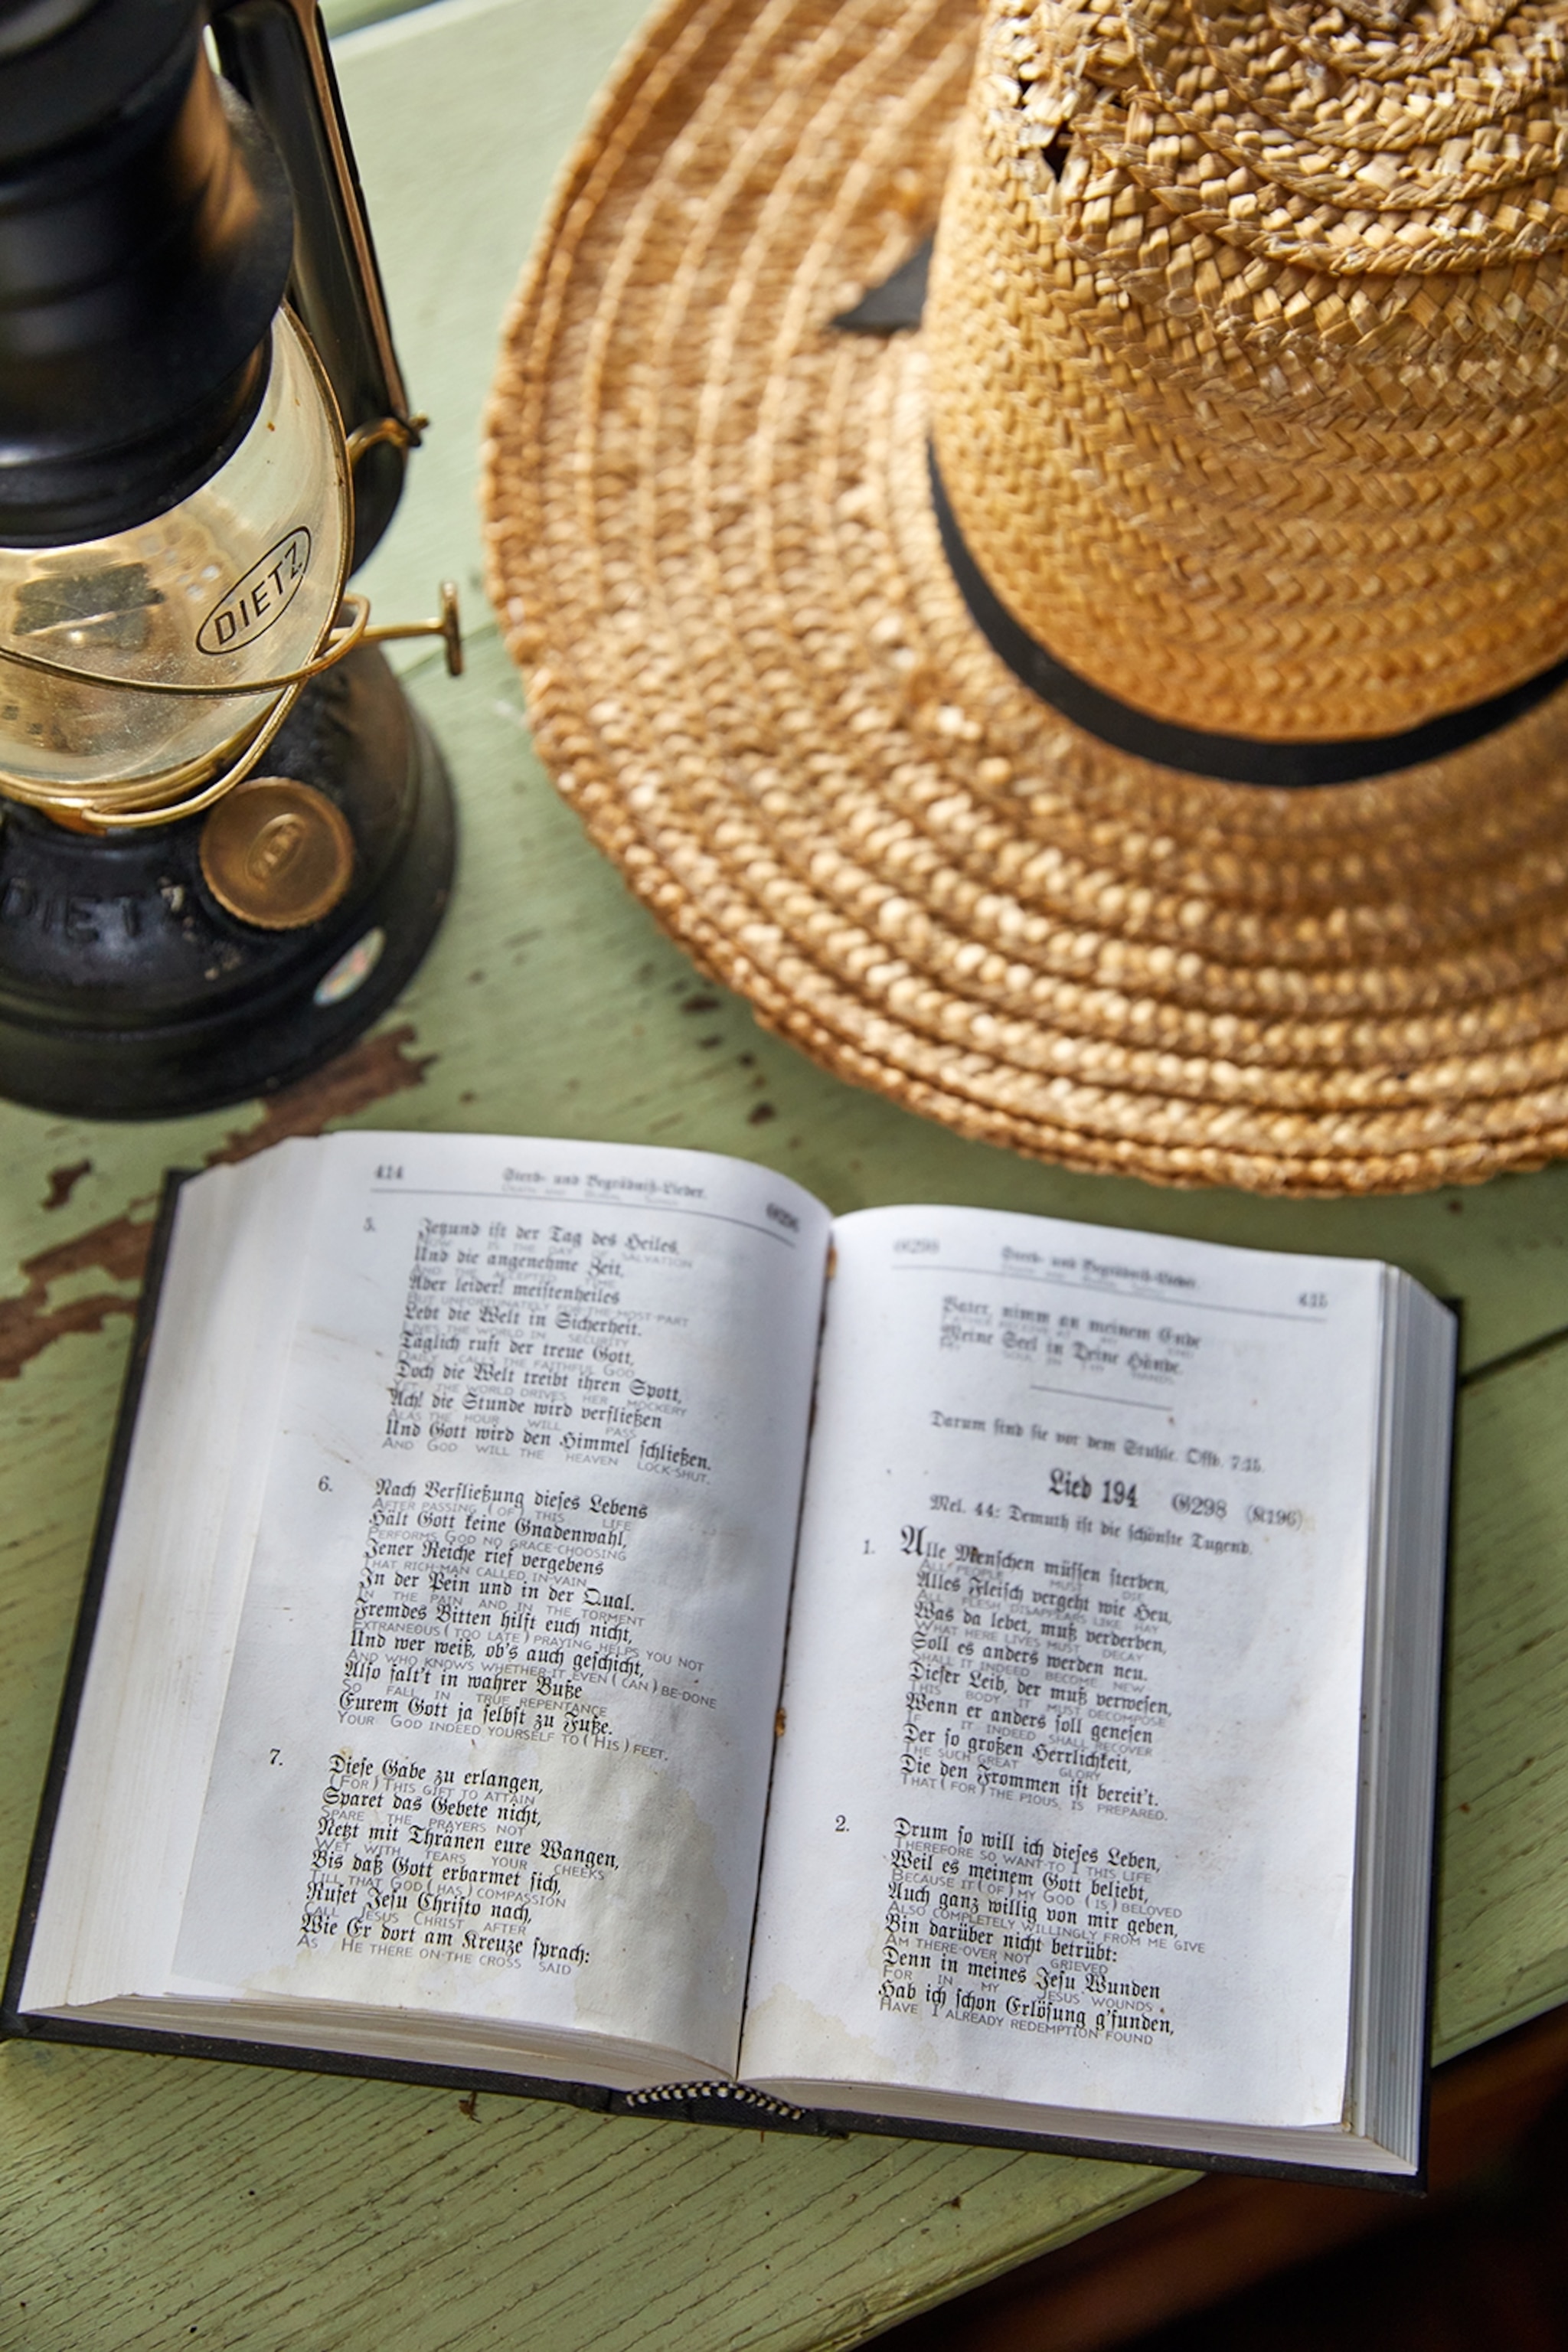 DIETZ
DIETZ
414 Sterb- und Begräbniß-Lieder.
5. Jetzund ist der Tag des Heiles,
IS THE DAY OF SALVATION
Und die angenehme Zeit,
AND THE ACCEPTED TIME
Aber leider! meistenheiles
BUT UNFORTUNATELY FOR THE MOST-PART
Lebt die Welt in Sicherheit.
LIVES THE WORLD IN SECURITY
Täglich ruft der treue Gott,
DAILY CALLS THE FAITHFUL GOD
Doch die Welt treibt ihren Spott,
YET THE WORLD DRIVES HER MOCKERY
Ach! die Stunde wird verfließen
ALAS THE HOUR WILL PASS
Und Gott wird den Himmel schließen.
AND GOD WILL THE HEAVEN LOCK-SHUT.
6. Nach Verfließung dieses Lebens
AFTER PASSING (OF) THIS LIFE
Hält Gott keine Gnadenwahl,
PERFORMS GOD NO GRACE-CHOOSING
Jener Reiche rief vergebens
THAT RICH-MAN CALLED IN-VAIN
In der Pein und in der Qual.
IN THE PAIN AND IN THE TORMENT
Fremdes Bitten hilft euch nicht,
EXTRANEOUS (TOO LATE) PRAYING HELPS YOU NOT
Und wer weiß, ob's auch geschicht,
AND WHO KNOWS WHETHER-IT EVEN (CAN) BE-DONE
Also falt't in wahrer Buße
SO FALL IN TRUE REPENTANCE
Eurem Gott ja selbst zu Fuße.
YOUR GOD INDEED YOURSELF TO (HIS) FEET.
7. Diese Gabe zu erlangen,
(FOR) THIS GIFT TO ATTAIN
Sparet das Gebete nicht,
SPARE THE PRAYERS NOT
Netzt mit Thränen eure Wangen,
WET WITH TEARS YOUR CHEEKS
Bis daß Gott erbarmet sich,
TILL THAT GOD (HAS) COMPASSION
Rufet Jesu Christo nach,
CALL JESUS CHRIST AFTER
Wie Er dort am Kreuze sprach:
AS HE THERE ON-THE CROSS SAID
G298 Sterb- und Begräbniß-Lieder. 415
Vater, nimm an meinem Ende
Meine Seel in Deine Hände.
Darum sind sie vor dem Stuhle. Offb. 7:15.
Lied 194 G298 (R196)
Mel. 44: Demuth ist die schönste Tugend.
1. Alle Menschen müssen sterben,
ALL PEOPLE MUST DIE
Alles Fleisch vergeht wie Heu,
ALL FLESH DISAPPEARS LIKE HAY
Was da lebet, muß verderben,
WHAT HERE LIVES MUST DECAY
Soll es anders werden neu.
SHALL IT INDEED BECOME NEW.
Dieser Leib, der muß verwesen,
THIS BODY IT MUST DECOMPOSE
Wenn er anders soll genesen
IF IT INDEED SHALL RECOVER
Der so großen Herrlichkeit,
THE SUCH GREAT GLORY
Die den Frommen ist bereit't.
THAT (FOR) THE PIOUS IS PREPARED.
2. Drum so will ich dieses Leben,
THEREFORE SO WANT-TO I THIS LIFE
Weil es meinem Gott beliebt,
BECAUSE IT (OF) MY GOD (IS) BELOVED
Auch ganz willig von mir geben,
ALSO COMPLETELY WILLINGLY FROM ME GIVE
Bin darüber nicht betrübt:
AM THERE-OVER NOT GRIEVED
Denn in meines Jesu Wunden
FOR IN MY JESUS' WOUNDS
Hab ich schon Erlösung g'funden,
HAVE I ALREADY REDEMPTION FOUND